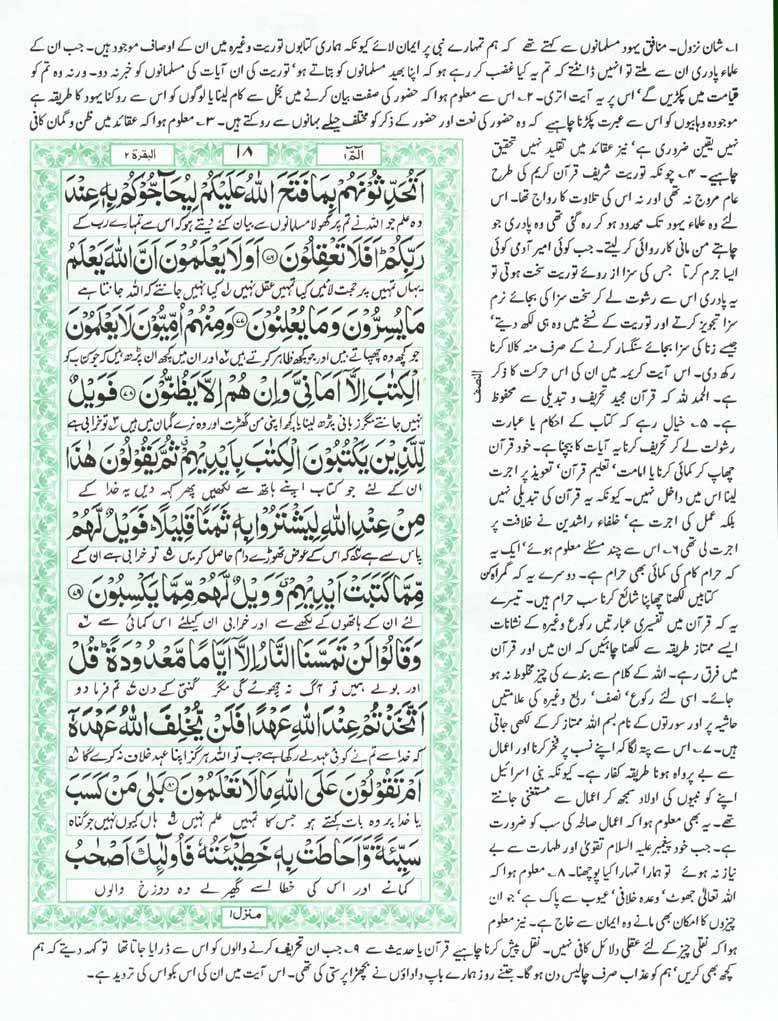 ۱۔ شان نزول۔ منافق یہود مسلمانوں سے کہتے تھے کہ ہم تمہارے نبی پر ایمان لائے کیونکہ ہماری کتابوں توریت وغیرہ میں ان کے اوصاف موجود ہیں۔ جب ان کے
علماء پادری ان سے ملتے تو انہیں ڈانٹتے کہ تم یہ کیا غضب کر رہے ہو کہ اپنا بھید مسلمانوں کو بتاتے ہو' توریت کی ان آیات کی مسلمانوں کو خبر نہ دو۔ ورنہ وہ تم کو
قیامت میں پکڑیں گے' اس پر یہ آیت اتری۔ ۲۔ اس سے معلوم ہوا کہ حضور کی صفت بیان کرنے میں بخل سے کام لینا یا لوگوں کو اس سے روکنا یہود کا طریقہ ہے
موجودہ وہابیوں کو اس سے عبرت پکڑنا چاہیے کہ وہ حضور کی نعت اور حضور کے ذکر کو مختلف حیلے بہانوں سے روکتے ہیں۔ ۳۔ معلوم ہوا کہ عقائد میں ظن و گمان کافی
نہیں یقین ضروری ہے' نیز عقائد میں تقلید نہیں تحقیق
چاہیے۔ ۴۔ چونکہ توریت شریف قرآن کریم کی طرح
عام مروج نہ تھی اور نہ اس کی تلاوت کا رواج تھا۔ اس
لئے وہ علماء یہود تک محدود ہو کر رہ گئی تھی وہ پادری جو
چاہتے من مانی کارروائی کر لیتے۔ جب کوئی امیر آدمی کوئی
ایسا جرم کرتا جس کی سزا از روئے توریت سخت ہوتی تو
یہ پادری اس سے رشوت لے کر سخت سزا کی بجائے نرم
سزا تجویز کرتے اور توریت کے نسخے میں وہ ہی لکھ دیتے'
جیسے زنا کی سزا بجائے سنگسار کرنے کے صرف منہ کالا کرنا
رکھ دی۔ اس آیت کریمہ میں ان کی اس حرکت کا ذکر
ہے۔ الحمد للہ کہ قرآن مجید تحریف و تبدیلی سے محفوظ
ہے۔ ۵۔ خیال رہے کہ کتاب کے احکام یا عبارت
رشوت لے کر تحریف کرنا یہ آیات کا بیچنا ہے۔ خود قرآن
چھاپ کر کمائی کرنا یا امامت' تعلیم قرآن' تعویذ پر اجرت
لینا اس میں داخل نہیں۔ کیونکہ یہ قرآن کی تبدیلی نہیں
بلکہ عمل کی اجرت ہے' خلفاء راشدین نے خلافت پر
اجرت لی تھی ۶۔ اس سے چند مسئلے معلوم ہوئے' ایک یہ
کہ حرام کام کی کمائی بھی حرام ہے۔ دوسرے یہ کہ گمراہ کن
کتابیں لکھنا چھاپنا شائع کرنا سب حرام ہیں۔ تیسرے
یہ کہ قرآن میں تفسیری عبارتیں رکوع وغیرہ کے نشانات
ایسے ممتاز طریقہ سے لکھنا چاہئیں کہ ان میں اور قرآن
میں فرق رہے۔ اللہ کے کلام سے بندے کی چیز مخلوط نہ ہو
جائے۔ اسی لئے رکوع' نصف' ربع وغیرہ کی علامتیں
حاشیہ پر اور سورتوں کے نام بسم اللہ ممتاز کر کے لکھی جاتی
ہیں۔ ۷۔ اس سے پتہ لگا کہ اپنے نسب پر فخر کرنا اور اعمال
سے بے پرواہ ہونا طریقہ کفار ہے۔ کیونکہ بنی اسرائیل
اپنے کو نبیوں کی اولاد سمجھ کر اعمال سے مستغنی جانتے
تھے۔ یہ بھی معلوم ہوا کہ اعمال صالحہ کی سب کو ضرورت
ہے۔ جب خود پیغمبر علیہ السلام تقویٰ اور طہارت سے بے
نیاز نہ ہوئے تو ہمارا تمہارا کیا پوچھنا۔ ۸۔ معلوم ہوا کہ
اللہ تعالیٰ جھوٹ' وعدہ خلافی' عیوب سے پاک ہے' جو ان
چیزوں کا امکان بھی مانے وہ ایمان سے خارج ہے۔ نیز معلوم
البقرة ۲ ۱۸ الٓمّٓ ۱
اَتُحَدِّثُوْنَهُمْ بِمَا فَتَحَ اللّٰهُ عَلَيْكُمْ لِيُحَآجُّوْكُمْ بِهٖ عِنْدَ
وہ علم جو اللہ نے تم پر کھولا مسلمانوں سے بیان کئے دیتے ہو کہ اس سے تمہارے رب کے
رَبِّكُمْ ؕ اَفَلَا تَعْقِلُوْنَ ﴿۷۶﴾ اَوَلَا يَعْلَمُوْنَ اَنَّ اللّٰهَ يَعْلَمُ
یہاں تمہیں پر حجت لائیں کیا تمہیں عقل نہیں ۱؎ کیا نہیں جانتے کہ اللہ جانتا ہے
مَا يُسِرُّوْنَ وَمَا يُعْلِنُوْنَ ﴿۷۷﴾ وَمِنْهُمْ اُمِّيُّوْنَ لَا يَعْلَمُوْنَ
جو کچھ وہ چھپاتے ہیں اور جو کچھ ظاہر کرتے ہیں ۲؎ اور ان میں کچھ ان پڑھ ہیں کہ جو کتاب کو
الْكِتٰبَ اِلَّاۤ اَمَانِيَّ وَاِنْ هُمْ اِلَّا يَظُنُّوْنَ ﴿۷۸﴾ فَوَيْلٌ
نہیں جانتے مگر زبانی پڑھ لینا یا کچھ اپنی من گھڑت اور وہ نرے گمان میں ہیں ۳؎ تو خرابی ہے
لِّلَّذِيْنَ يَكْتُبُوْنَ الْكِتٰبَ بِاَيْدِيْهِمْ ثُمَّ يَقُوْلُوْنَ هٰذَا
ان کے لئے جو کتاب اپنے ہاتھ سے لکھیں پھر کہہ دیں یہ خدا کے
مِنْ عِنْدِ اللّٰهِ لِيَشْتَرُوْا بِهٖ ثَمَنًا قَلِيْلًا ؕ فَوَيْلٌ لَّهُمْ
پاس سے ہے ۴؎ کہ اس کے عوض تھوڑے دام حاصل کریں ۵؎ تو خرابی ہے ان کے
مِّمَّا كَتَبَتْ اَيْدِيْهِمْ وَوَيْلٌ لَّهُمْ مِّمَّا يَكْسِبُوْنَ ﴿۷۹﴾
لئے ان کے ہاتھوں کے لکھے سے اور خرابی ان کیلئے اس کمائی سے ۶؎
وَقَالُوْا لَنْ تَمَسَّنَا النَّارُ اِلَّاۤ اَيَّامًا مَّعْدُوْدَةً ؕ قُلْ
اور بولے ہمیں تو آگ نہ چھوئے گی مگر گنتی کے دن ۷؎ تم فرما دو
اَتَّخَذْتُمْ عِنْدَ اللّٰهِ عَهْدًا فَلَنْ يُّخْلِفَ اللّٰهُ عَهْدَهٗۤ
کہ خدا سے تم نے کوئی عہد لے رکھا ہے جب تو اللہ ہرگز اپنا عہد خلاف نہ کرے گا ۸؎
اَمْ تَقُوْلُوْنَ عَلَى اللّٰهِ مَا لَا تَعْلَمُوْنَ ﴿۸۰﴾ بَلٰى مَنْ كَسَبَ
یا خدا پر وہ بات کہتے ہو جس کا تمہیں علم نہیں ۹؎ ہاں کیوں نہیں جو گناہ
سَيِّئَةً وَّاَحَاطَتْ بِهٖ خَطِيْٓئَتُهٗ فَاُولٰٓئِكَ اَصْحٰبُ
کمائے اور اس کی خطا اسے گھیر لے وہ دوزخ والوں
النصف
منزل ۱
ہوا کہ نقلی چیز کے لئے عقلی دلائل کافی نہیں۔ نقل پیش کرنا چاہیے قرآن یا حدیث سے ۹۔ جب ان تحریف کرنے والوں کو اس سے ڈرایا جاتا تھا تو کہہ دیتے کہ ہم
کچھ بھی کریں' ہم کو عذاب صرف چالیس دن ہو گا۔ جتنے روز ہمارے باپ داداؤں نے بچھڑا پرستی کی تھی۔ اس آیت میں ان کی اس بکواس کی تردید ہے۔